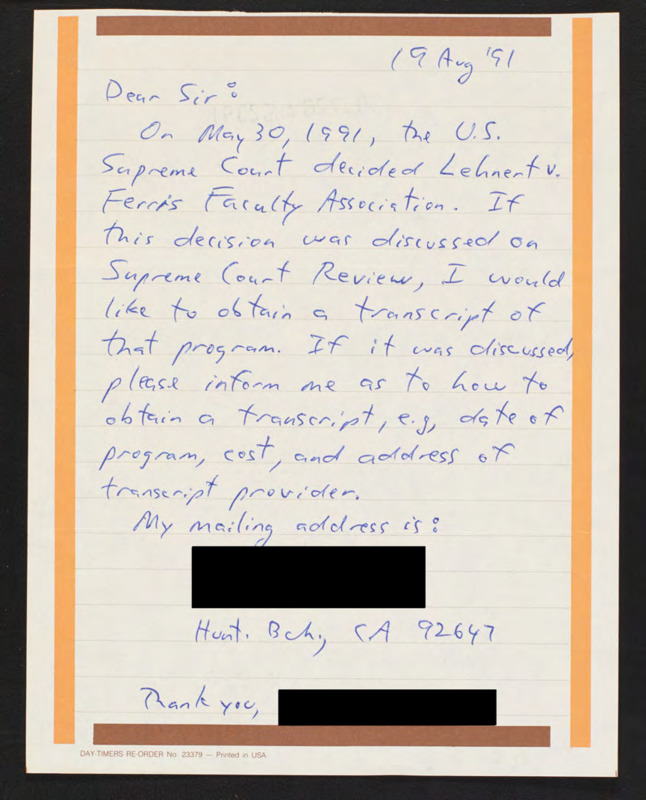 19 Aug '91
Dear Sir:
On May 30, 1991, the U.S.
Supreme Court decided Lehnert v.
Ferris Faculty Association. If
this decision was discussed on
Supreme Court Review, I would
like to obtain a transcript of
that program. If it was discussed,
please inform me as to how to
obtain a transcript, e.g., date of
program, cost, and address of
transcript provider.
My mailing address is:
Hunt. Bch., CA 92647
Thank you,
DAY-TIMERS RE-ORDER No. 23379 — Printed in USA